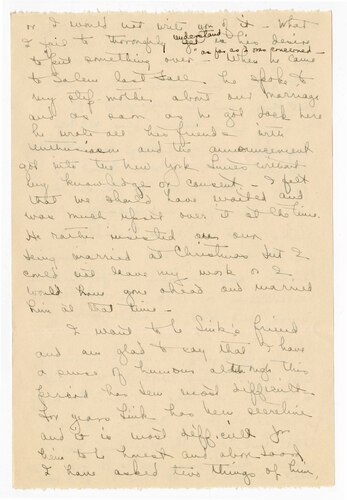 or I would not write you of it - What
I fail to thoroughly understand is his desire
"as far as I was concerned -
to put something over - When he came
to Salem last fall he spoke to
my step mother about our marriage
and as soon as he got back here
he wrote all his friends with
enthusiasm and the announcement
got into the New York Times without
my knowledge or consent - I felt
that we should have waited and
was much upset over it at the time.
He rather insisted on our
being married at Christmas but I
could not leave my work or I
would have gone ahead and married
him at that time -
I want to be Link's friend
and am glad to say that I have
a sense of humour although this
period has been most difficult.
For years Link has been secretive
and it is most difficult for
him to be honest and above board
I have asked two things of him,